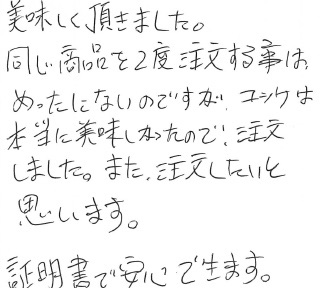 美味しく頂きました。
同じ商品を2度注文する事は、
めったにないのですが、コシケは
本当に美味しかったので、注文
しました。また、注文したいと
思います。
証明書で安心で生ます。